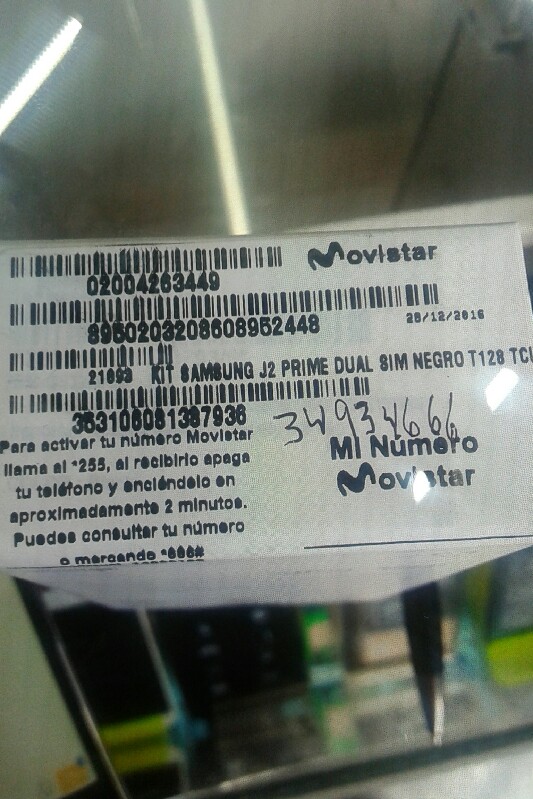 Movistar
02004263449
8950203208608952448
28/12/2016
21693 KIT SAMSUNG J2 PRIME DUAL SIM NEGRO T128 TCL
353106081387936
34934666
Para activar tu número Movistar
llama al *255, al recibirlo apaga
tu teléfono y enciéndelo en
aproximadamente 2 minutos.
Puedes consultar tu número
o marcando *666#
Mi Número
Movistar